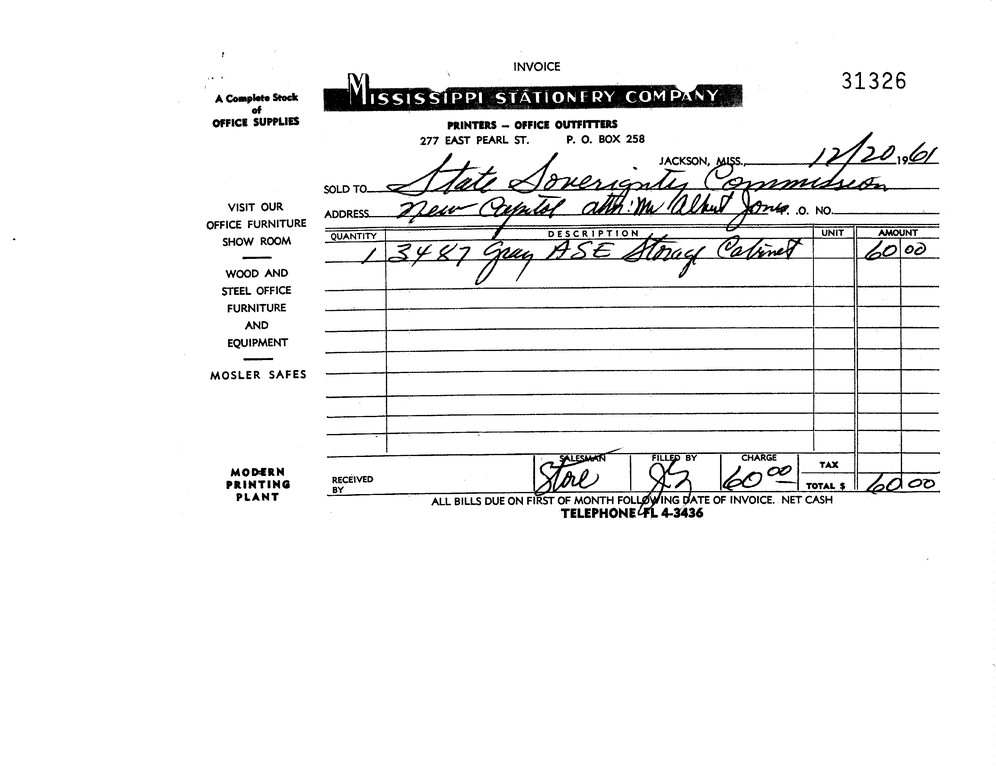 INVOICE
31326
A Complete Stock
of
OFFICE SUPPLIES
MISSISSIPPI STATIONERY COMPANY
PRINTERS — OFFICE OUTFITTERS
277 EAST PEARL ST. P. O. BOX 258
JACKSON, MISS., 12/20 1961
SOLD TO State Soverignty Commission
ADDRESS New Capitol attn: Mr Albert Jones .O. NO.
VISIT OUR
OFFICE FURNITURE
SHOW ROOM
WOOD AND
STEEL OFFICE
FURNITURE
AND
EQUIPMENT
MOSLER SAFES
QUANTITY DESCRIPTION UNIT AMOUNT
1 3487 Gray ASE Storage Cabinet 60 00
MODERN
PRINTING
PLANT
RECEIVED
BY
SALESMAN FILLED BY CHARGE TAX
Store 60 00 TOTAL $ 60 00
ALL BILLS DUE ON FIRST OF MONTH FOLLOWING DATE OF INVOICE. NET CASH
TELEPHONE FL 4-3436